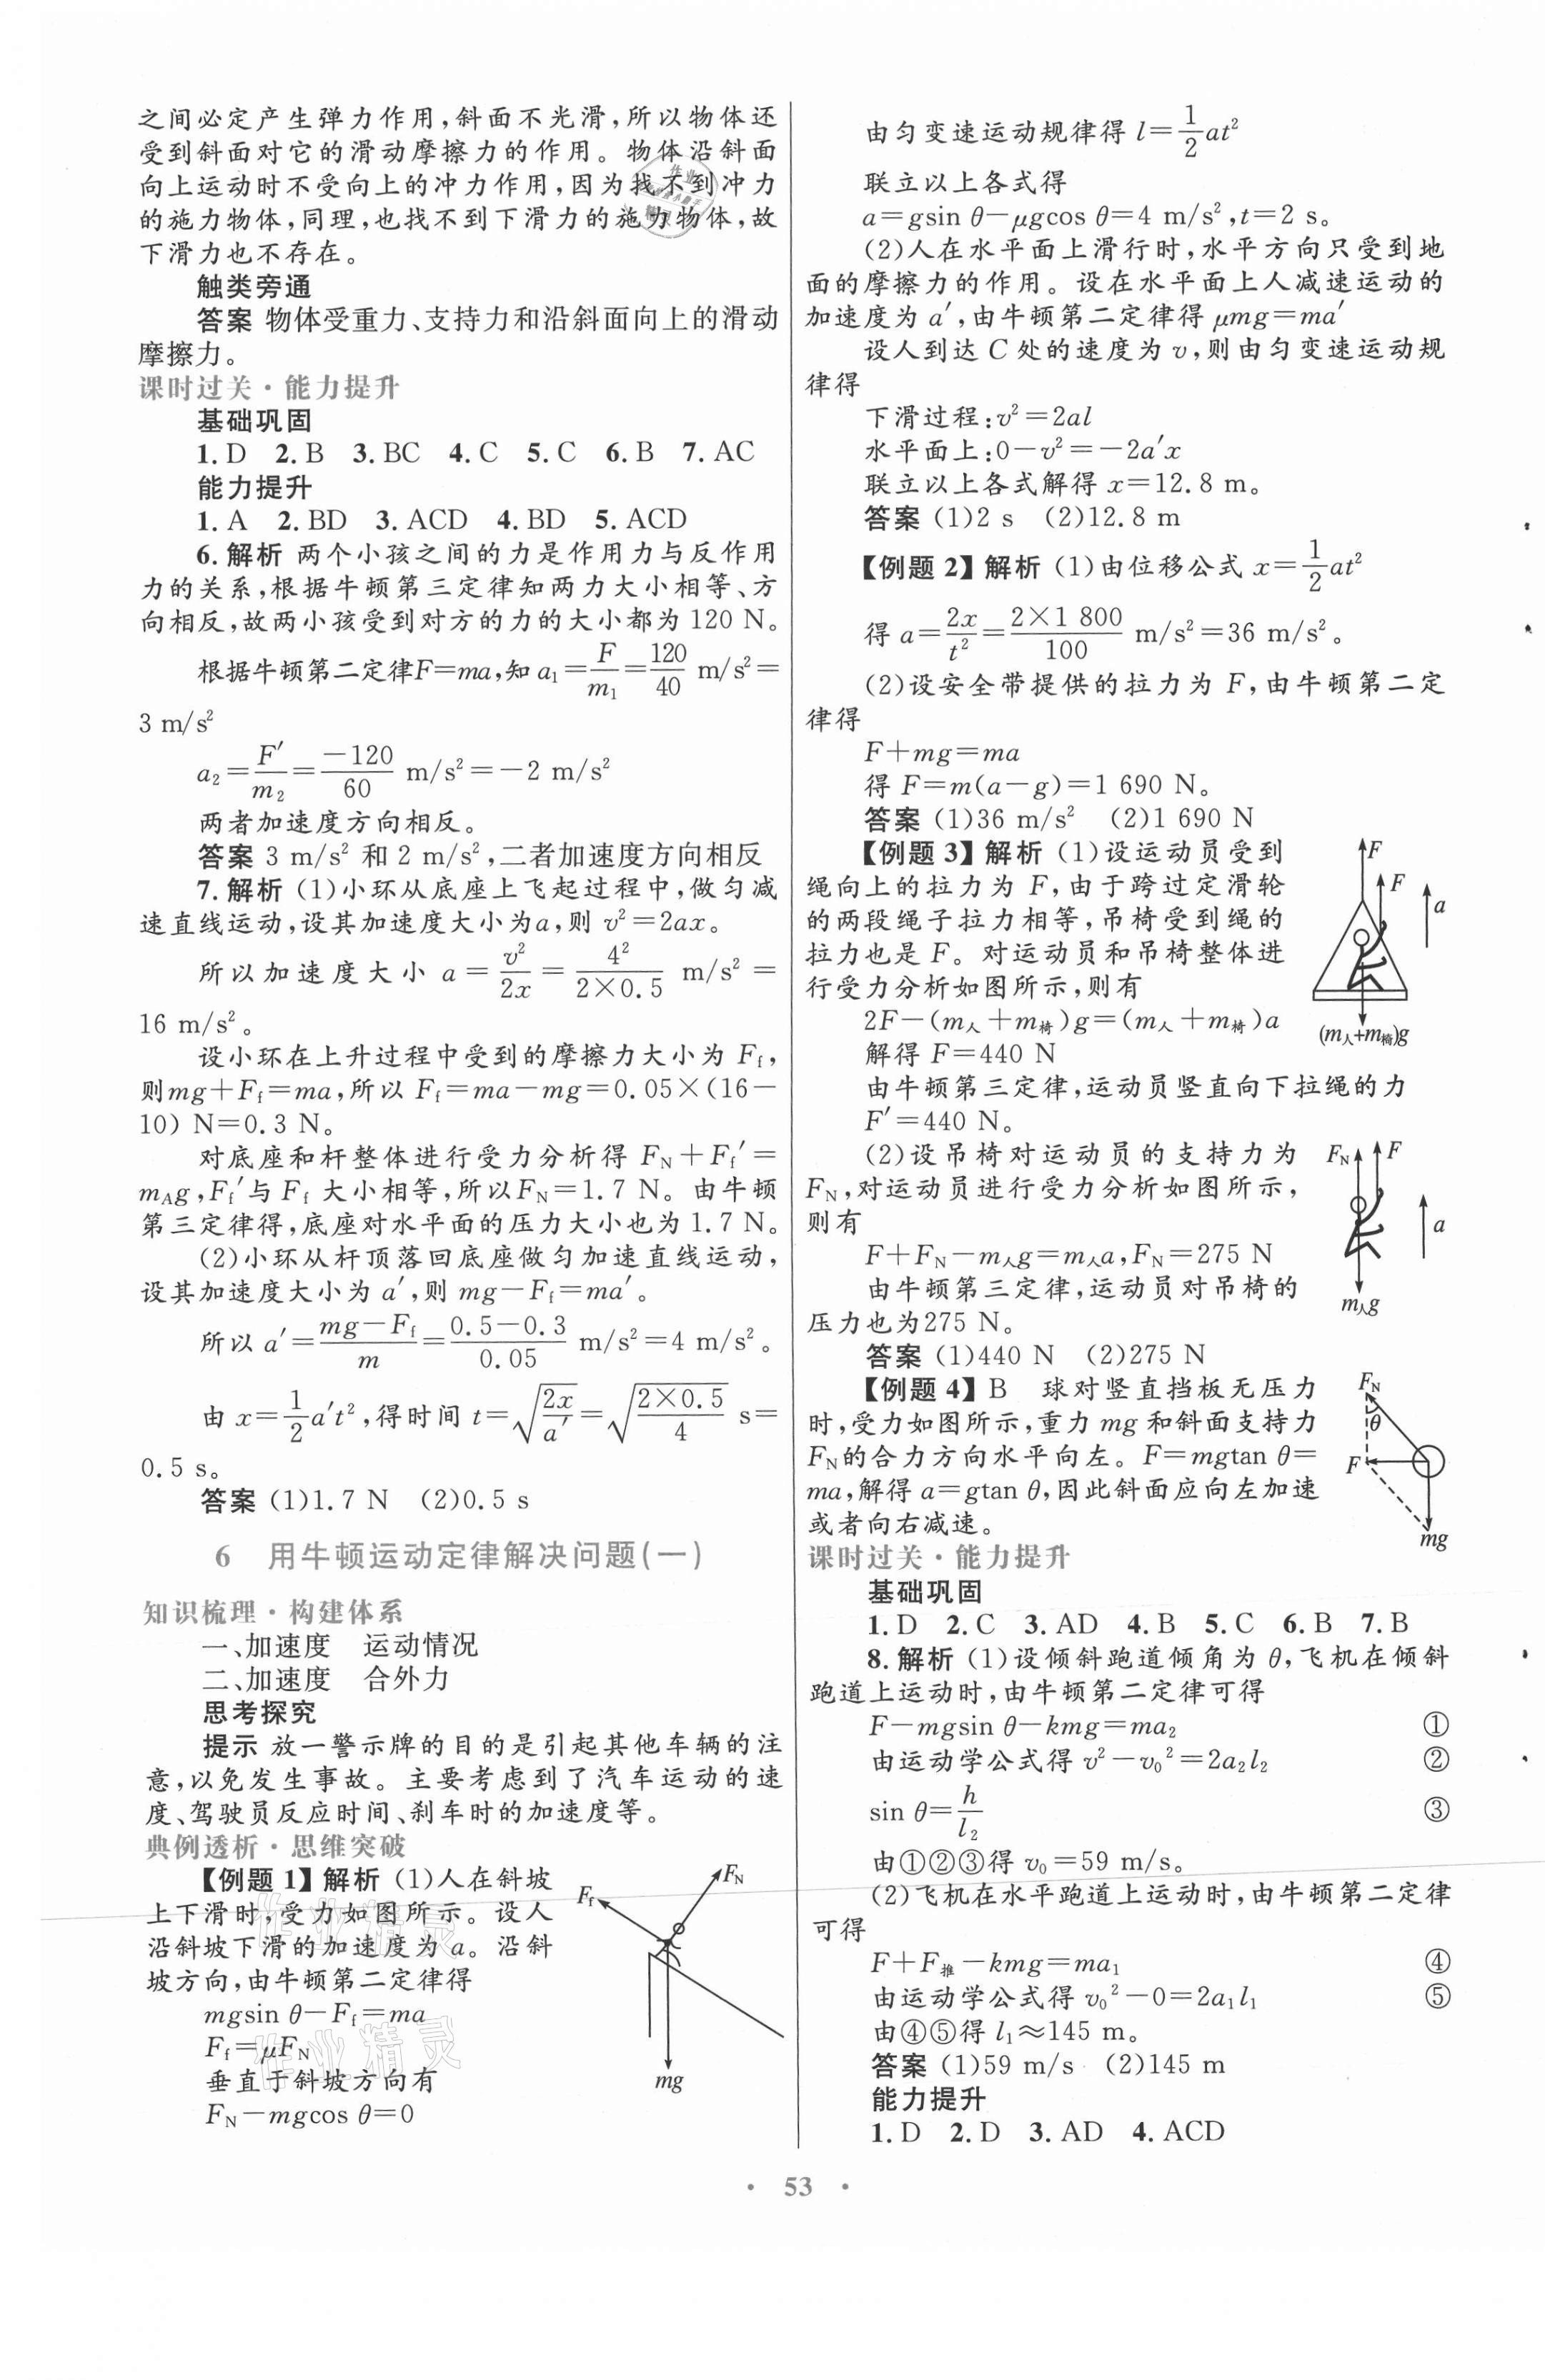 之间必定产生弹力作用,斜面不光滑,所以物体还
受到斜面对它的滑动摩擦力的作用。物体沿斜面
向上运动时不受向上的冲力作用,因为找不到冲力
的施力物体,同理,也找不到下滑力的施力物体,故
下滑力也不存在。
触类旁通
答案 物体受重力、支持力和沿斜面向上的滑动
摩擦力。
课时过关·能力提升
基础巩固
1. D 2. B 3. BC 4. C 5. C 6. B 7. AC
能力提升
1. A 2. BD 3. ACD 4. BD 5. ACD
6. 解析 两个小孩之间的力是作用力与反作用
力的关系,根据牛顿第三定律知两力大小相等、方
向相反,故两小孩受到对方的力的大小都为 120 N。
根据牛顿第二定律F=ma,知 a₁=F/m₁=120/40 m/s²=
3 m/s²
a₂=F′/m₂=−120/60 m/s²=−2 m/s²
两者加速度方向相反。
答案 3 m/s² 和 2 m/s²,二者加速度方向相反
7. 解析 (1)小环从底座上飞起过程中,做匀减
速直线运动,设其加速度大小为a,则 v²=2ax。
所以加速度大小 a=v²/2x=4²/(2×0.5) m/s²=
16 m/s²。
设小环在上升过程中受到的摩擦力大小为 Ff,
则mg+Ff=ma,所以 Ff=ma−mg=0.05×(16−
10) N=0.3 N。
对底座和杆整体进行受力分析得 FN+Ff′=
mAg,Ff′与 Ff 大小相等,所以FN=1.7 N。由牛顿
第三定律得,底座对水平面的压力大小也为 1.7 N。
(2)小环从杆顶落回底座做匀加速直线运动,
设其加速度大小为 a′,则 mg−Ff=ma′。
所以 a′=(mg−Ff)/m=(0.5−0.3)/0.05 m/s²=4 m/s²。
由 x=1/2 a′t²,得时间 t=√(2x/a′)=√(2×0.5/4) s=
0.5 s。
答案 (1)1.7 N (2)0.5 s
6 用牛顿运动定律解决问题(一)
知识梳理·构建体系
一、加速度 运动情况
二、加速度 合外力
思考探究
提示 放一警示牌的目的是引起其他车辆的注
意,以免发生事故。主要考虑到了汽车运动的速
度、驾驶员反应时间、刹车时的加速度等。
典例透析·思维突破
【例题 1】解析 (1)人在斜坡
上下滑时,受力如图所示。设人
沿斜坡下滑的加速度为 a。沿斜
坡方向,由牛顿第二定律得
mgsin θ−Ff=ma
Ff=μFN
垂直于斜坡方向有
FN−mgcos θ=0
FN
Ff
mg
由匀变速运动规律得 l=1/2 at²
联立以上各式得
a=gsin θ−μgcos θ=4 m/s²,t=2 s。
(2)人在水平面上滑行时,水平方向只受到地
面的摩擦力的作用。设在水平面上人减速运动的
加速度为 a′,由牛顿第二定律得 μmg=ma′
设人到达 C 处的速度为 v,则由匀变速运动规
律得
下滑过程:v²=2al
水平面上:0−v²=−2a′x
联立以上各式解得 x=12.8 m。
答案 (1)2 s (2)12.8 m
【例题 2】解析 (1)由位移公式 x=1/2 at²
得 a=2x/t²=2×1 800/100 m/s²=36 m/s²。
(2)设安全带提供的拉力为 F,由牛顿第二定
律得
F+mg=ma
得 F=m(a−g)=1 690 N。
答案 (1)36 m/s² (2)1 690 N
【例题 3】解析 (1)设运动员受到
绳向上的拉力为 F,由于跨过定滑轮
的两段绳子拉力相等,吊椅受到绳的
拉力也是 F。对运动员和吊椅整体进
行受力分析如图所示,则有
2F−(m人+m椅)g=(m人+m椅)a
解得 F=440 N
由牛顿第三定律,运动员竖直向下拉绳的力
F′=440 N。
F
F
a
(m人+m椅)g
(2)设吊椅对运动员的支持力为
FN,对运动员进行受力分析如图所示,
则有
F+FN−m人g=m人a,FN=275 N
由牛顿第三定律,运动员对吊椅的
压力也为275 N。
FN
F
a
m人g
答案 (1)440 N (2)275 N
【例题 4】B 球对竖直挡板无压力
时,受力如图所示,重力 mg 和斜面支持力
FN的合力方向水平向左。F=mgtan θ=
ma,解得 a=gtan θ,因此斜面应向左加速
或者向右减速。
FN
θ
F
mg
课时过关·能力提升
基础巩固
1. D 2. C 3. AD 4. B 5. C 6. B 7. B
8. 解析 (1)设倾斜跑道倾角为 θ,飞机在倾斜
跑道上运动时,由牛顿第二定律可得
F−mgsin θ−kmg=ma₂ ①
由运动学公式得 v²−v₀²=2a₂l₂ ②
sin θ=h/l₂ ③
由①②③得 v₀=59 m/s。
(2)飞机在水平跑道上运动时,由牛顿第二定律
可得
F+F推−kmg=ma₁ ④
由运动学公式得 v₀²−0=2a₁l₁ ⑤
由④⑤得 l₁≈145 m。
答案 (1)59 m/s (2)145 m
能力提升
1. D 2. D 3. AD 4. ACD
· 53 ·
作业精灵
作业精灵